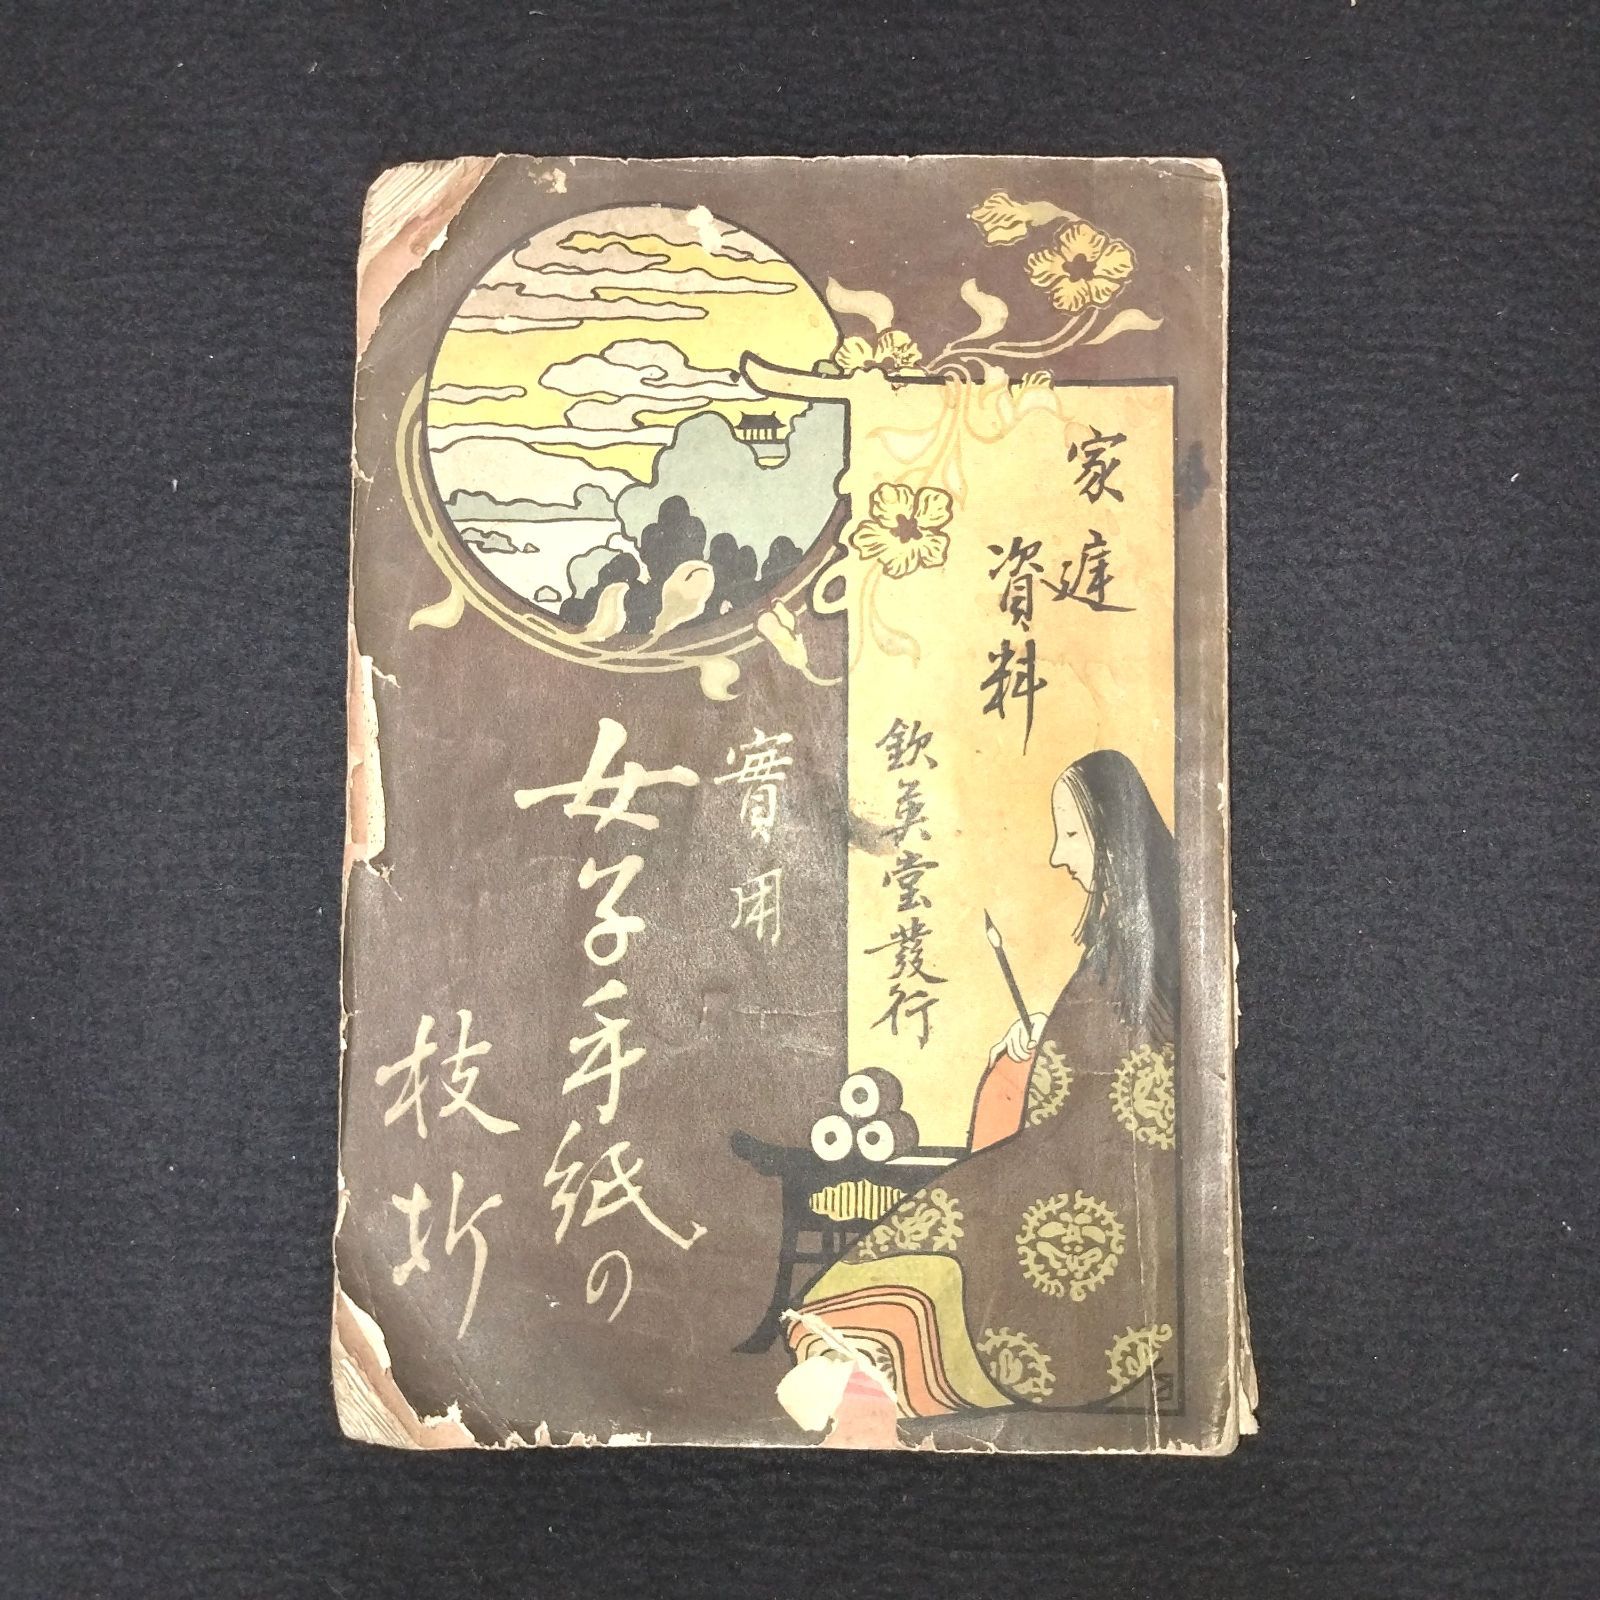 家庭
資料
欽英堂發行
實用
女子手紙の
枝折